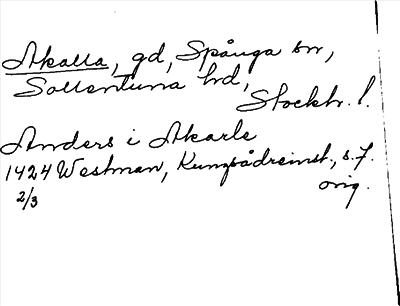 Akalla, gd, Spånga sn,
Sollentuna hd,
Stockh. l.
Anders i Akarle
1424 Westman, Kungsådreinst., s. 7.
2/3 orig.